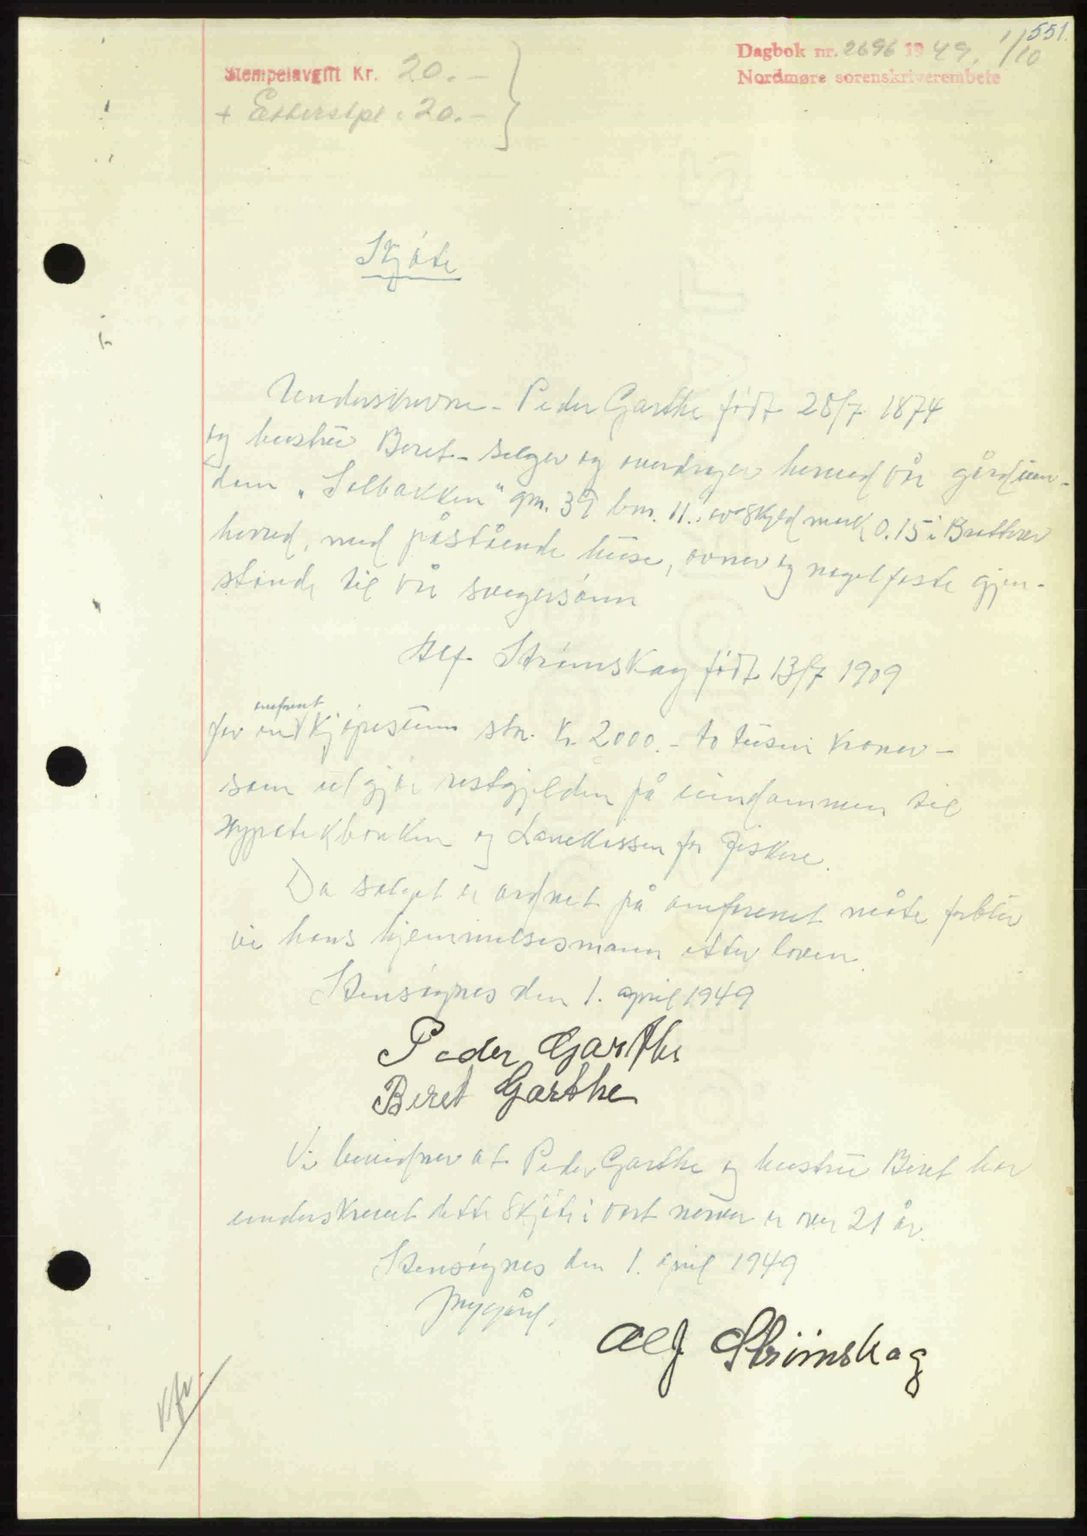 551.
Dagbok nr. 2696 1949. 1/10
Nordmøre sorenskriverembete
Stempelavgift Kr. 20.-
+ Etterstpl. 20.-
Skjøte
Underskrevne - Peder Garthe født 28/7 1874
og hustru Beret - selger og overdrager hermed vår gårdeien-
dom "Solbakken" gnr. 39 bnr. 11. av skyld mark 0.15 i Brattvær
herred, med påstående huse, ovner og nagelfaste gjen-
stande til vår svigersønn
Alf Strømskag født 13/7 1909
for en omforent kjøpesum stor kr. 2000.- to tusen kroner -
som utgjør restgjelden på eiendommen til
Hypotekbanken og Lånekassen for Fiskere.
Da salget er ordnet på omforenet måte forblir
vi hans hjemmelsmann etter loven.
Stensøynes den 1. april 1949
Peder Garthe
Beret Garthe
Vi bevidner at Peder Garthe og hustru Beret har
underskrevet dette skjøte i vort nærvær er over 21 år.
Stensøynes den 1. april 1949
Alf Strømskag